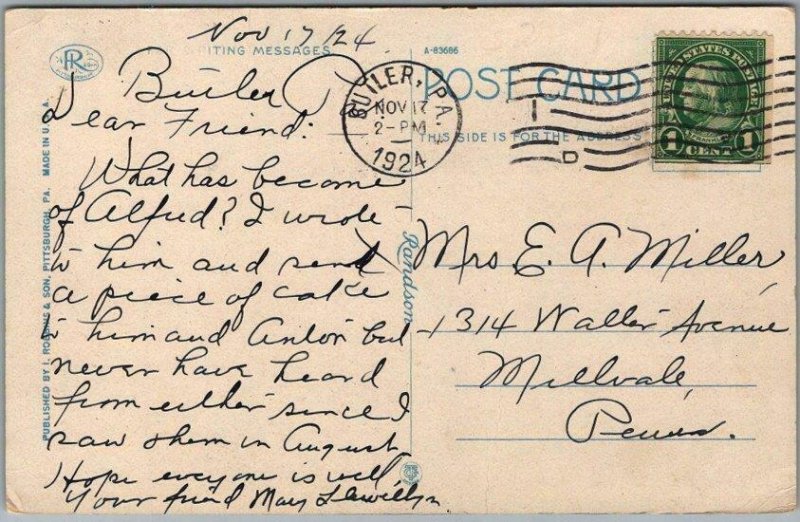 Nov 17/24
ITING MESSAGES
Butler Pa
Dear Friend:
What has become
of Alfred? I wrote
to him and send
a piece of cake
to him and Anton but
never have heard
from either since I
saw them in August
Hope everyone is well
Your friend Mary Llewellyn
A-83686
POST CARD
THIS SIDE IS FOR THE ADDRESS
BUTLER, PA.
NOV 17
2-PM
1924
UNITED STATES POSTAGE
1 CENT 1
Mrs E. A. Miller,
1314 Walter Avenue
Millvale,
Penna.
Randson
PUBLISHED BY I. ROBBINS & SON, PITTSBURGH, PA. MADE IN U.S.A.
R